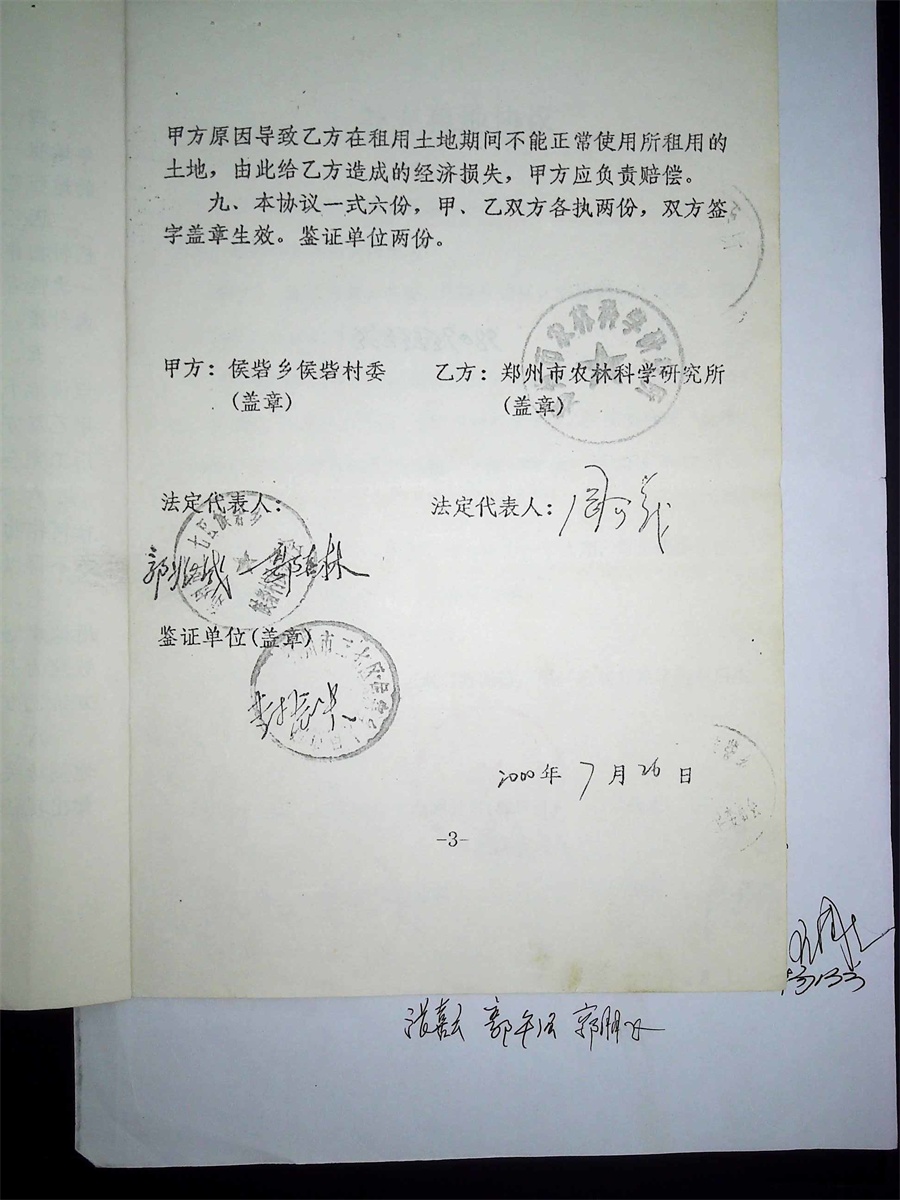 甲方原因导致乙方在租用土地期间不能正常使用所租用的
土地，由此给乙方造成的经济损失，甲方应负责赔偿。
九、本协议一式六份，甲、乙双方各执两份，双方签
字盖章生效。鉴证单位两份。
甲方：侯砦乡侯砦村委 乙方：郑州市农林科学研究所
(盖章) (盖章)
法定代表人： 法定代表人：
鉴证单位(盖章)
2000年 7月 26日
-3-